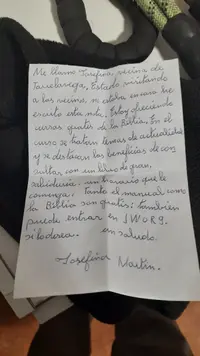 Me llamo Josefina, vecina de
Torrelavega, Estado visitando
a los vecinos, ni estaba en casa le
escribo esta nota. Estoy ofreciendo
cursos gratis de la Biblia. En el
curso se tratan temas de actualidad
y se destacan los beneficios de con
sultar, con un libro de gran
sabiduría. un horario que le
convenga; Tanto el manual como
la Biblia son gratis; también
puede entrar en JW.ORG.
si lo desea. un saludo
Josefina Martin.